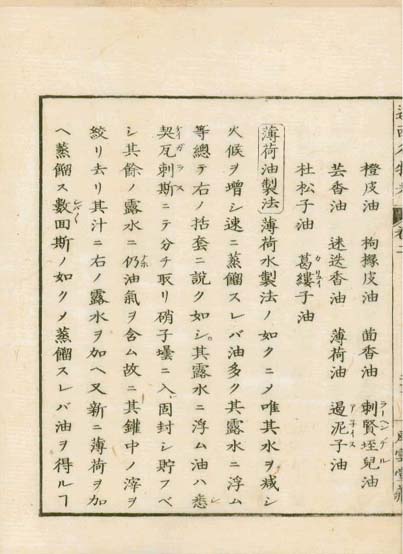 卷二
橙皮油 拘櫞皮油 茴香油 剌賢垤兒油
芸香油 迷迭香油 薄荷油 遏泥子油
杜松子油 葛縷子油
薄荷油製法 薄荷水製法ノ如クニメ唯其水ヲ減シ
火候ヲ增シ速ニ蒸餾スレバ油多ク其露水ニ浮ム
等總テ右ノ括套ニ說ク如シ。其露水ニ浮ム油ハ悉
契瓦剌斯ニテ分チ取リ硝子壜ニ入、固封シ貯フベ
シ其餘ノ露水ニ仍油氣ヲ含ム故ニ其鑵中ノ滓ヲ
絞リ去リ其汁ニ右ノ露水ヲ加ヘ又新ニ薄荷ヲ加
ヘ蒸餾ス數回斯ノ如クメ蒸餾スレバ油ヲ得ルヿ